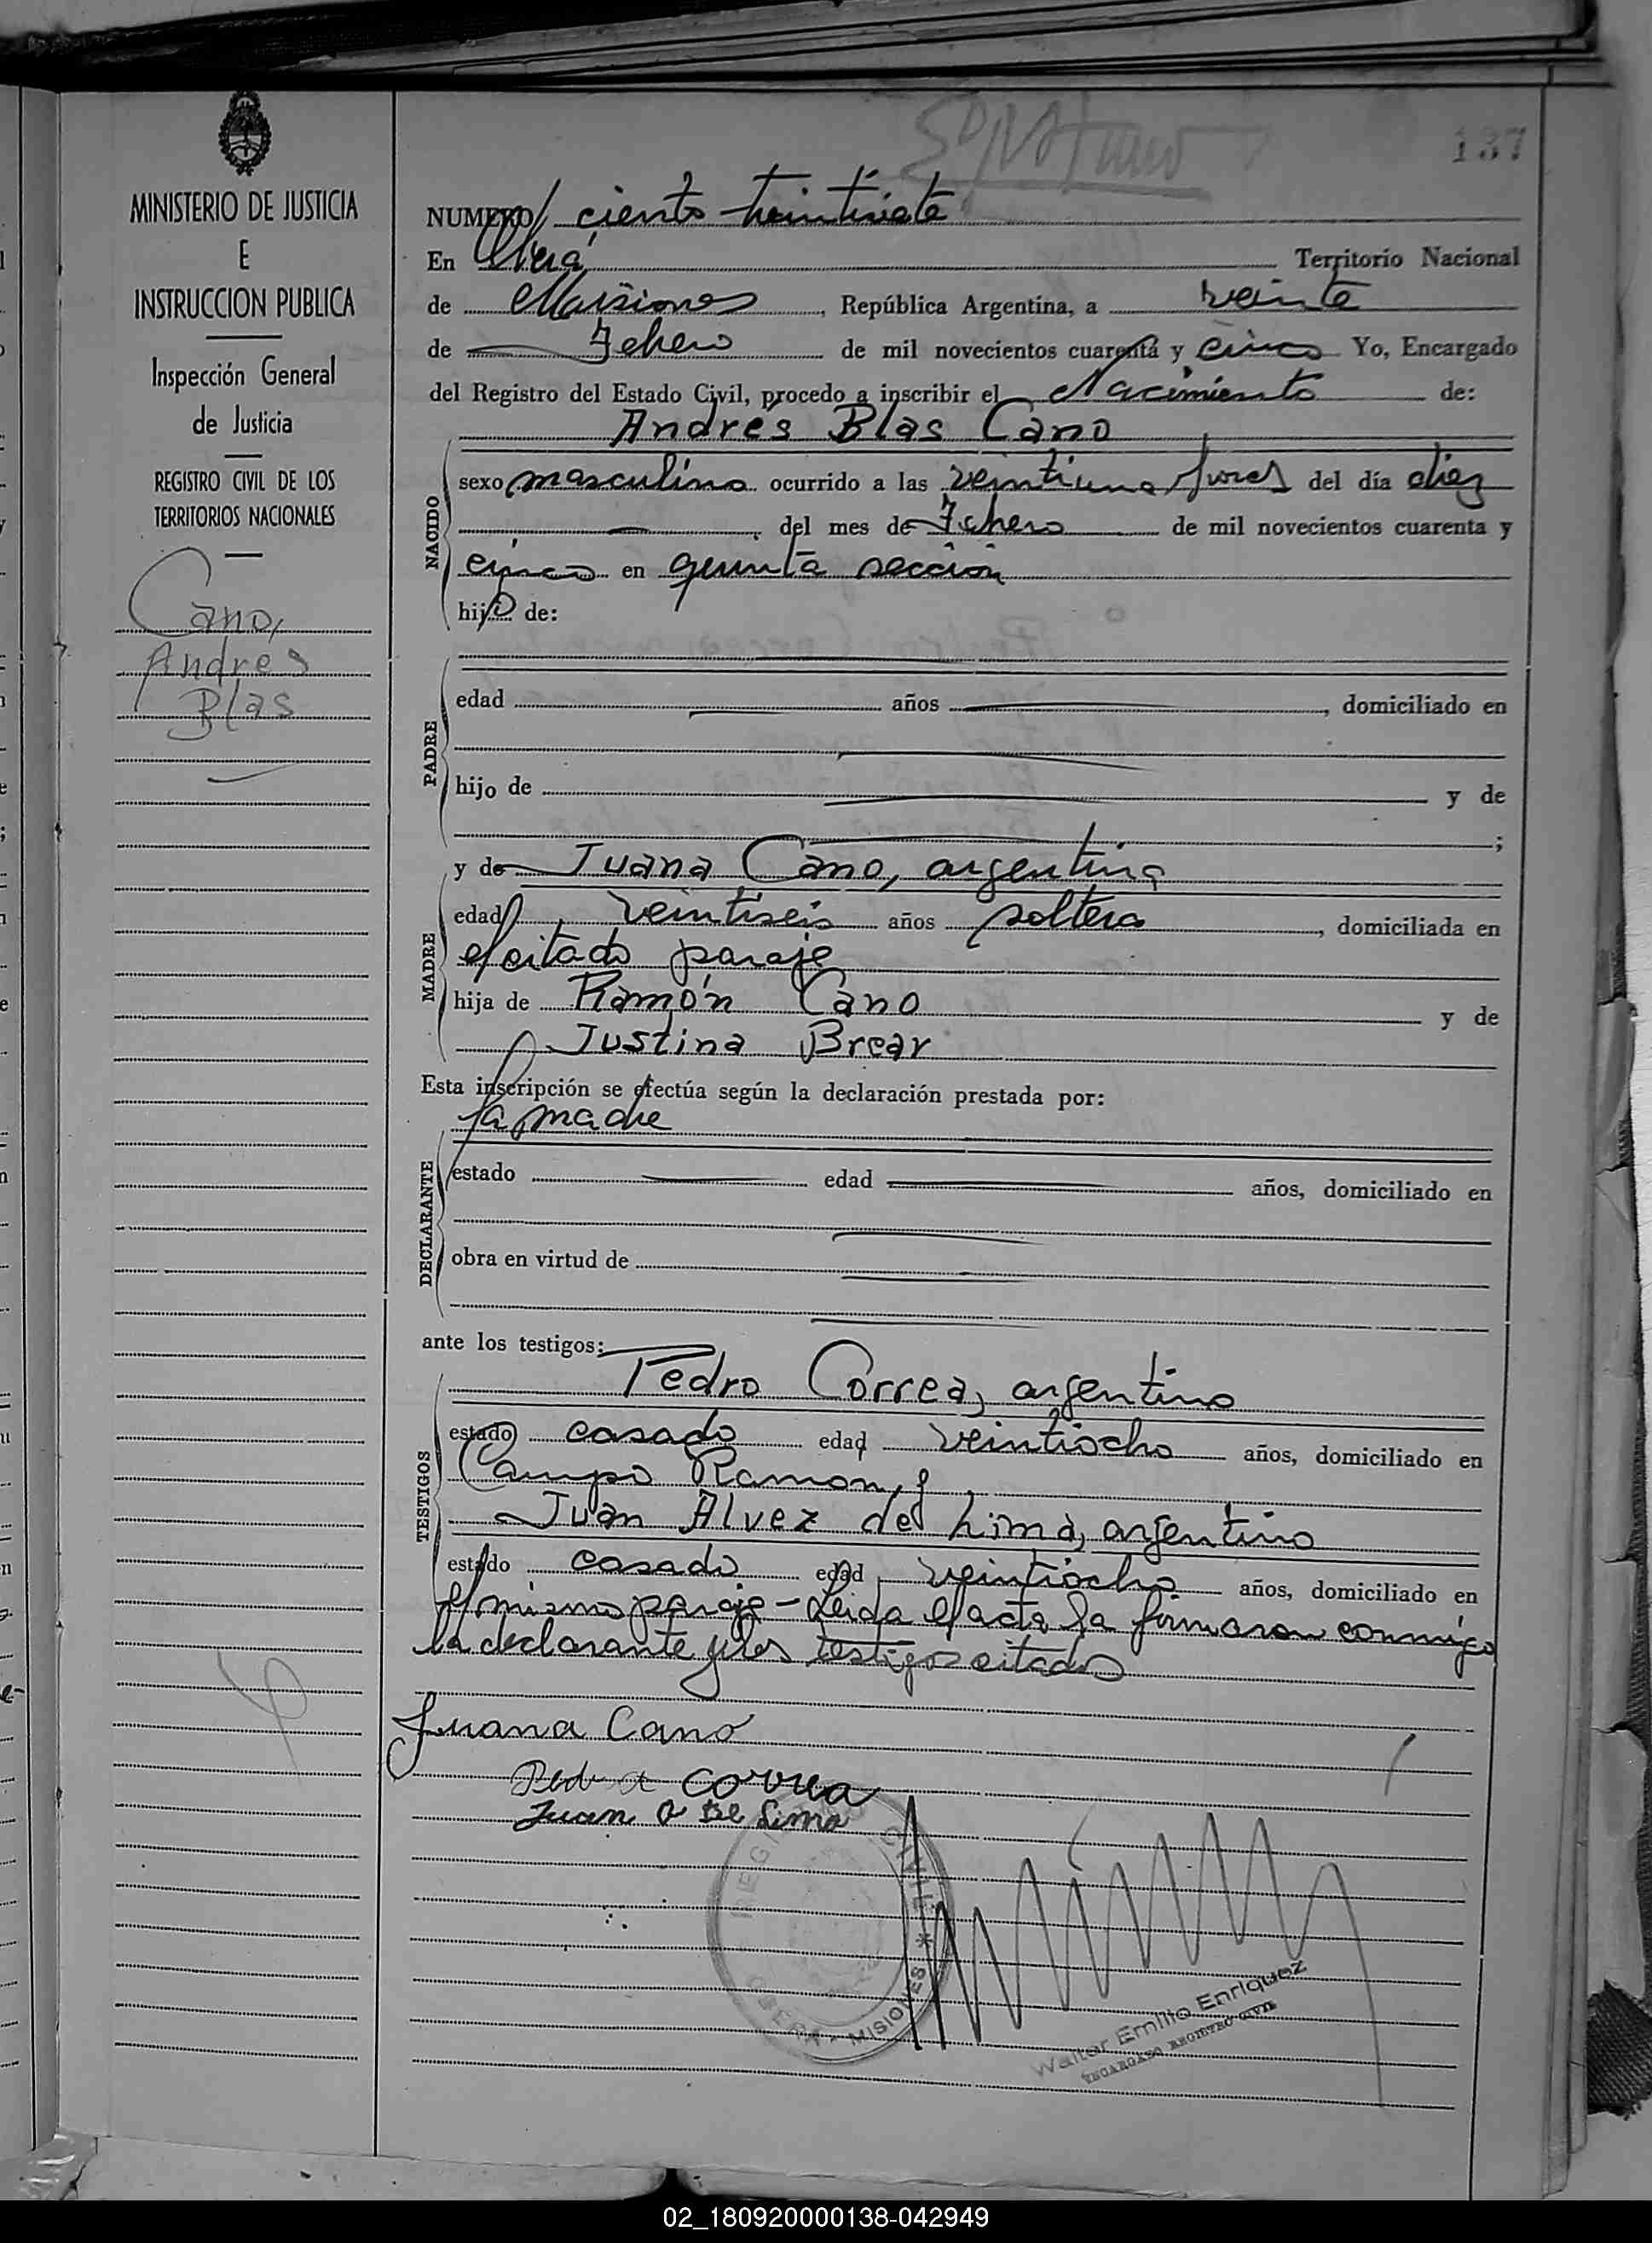 137
MINISTERIO DE JUSTICIA
E
INSTRUCCION PUBLICA
Inspección General
de Justicia
REGISTRO CIVIL DE LOS
TERRITORIOS NACIONALES
Cano,
Andres
Blas
NUMERO ciento treintisiete
En Oberá Territorio Nacional
de Misiones, República Argentina, a veinte
de Febrero de mil novecientos cuarenta y cinco Yo, Encargado
del Registro del Estado Civil, procedo a inscribir el Nacimiento de:
Andrés Blas Cano
NACIDO
sexo masculino ocurrido a las veintiuna horas del día diez
del mes de Febrero de mil novecientos cuarenta y
cinco en quinta sección
hijo de:
PADRE
edad años, domiciliado en
hijo de y de
;
y de Juana Cano, argentina
MADRE
edad veintiseis años soltera, domiciliada en
el citado paraje
hija de Ramón Cano y de
Justina Brear
Esta inscripción se efectúa según la declaración prestada por:
la madre
DECLARANTE
estado edad años, domiciliado en
obra en virtud de
ante los testigos:
TESTIGOS
Pedro Correa, argentino
estado casado edad veintiocho años, domiciliado en
Campo Ramon, y
Juan Alvez de Lima, argentino
estado casado edad veintiocho años, domiciliado en
el mismo paraje - Leida el acta la firmaron conmigo
la declarante y los testigos citados
Juana Cano
Pedro Correa
Juan A de Lima
REGISTRO CIVIL * OBERA - MISIONES *
Walter Emilio Enriquez
ENCARGADO REGISTRO CIVIL
02_180920000138-042949